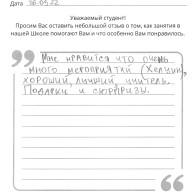 Дата 26.09.22
Уважаемый студент!
Просим Вас оставить небольшой отзыв о том, как занятия в
нашей Школе помогают Вам и что особенно Вам понравилось.
Мне нравится что очень
много мероприятий (Хелуин),
хороший, лучший, учитель.
Подарки и сюрпризы.